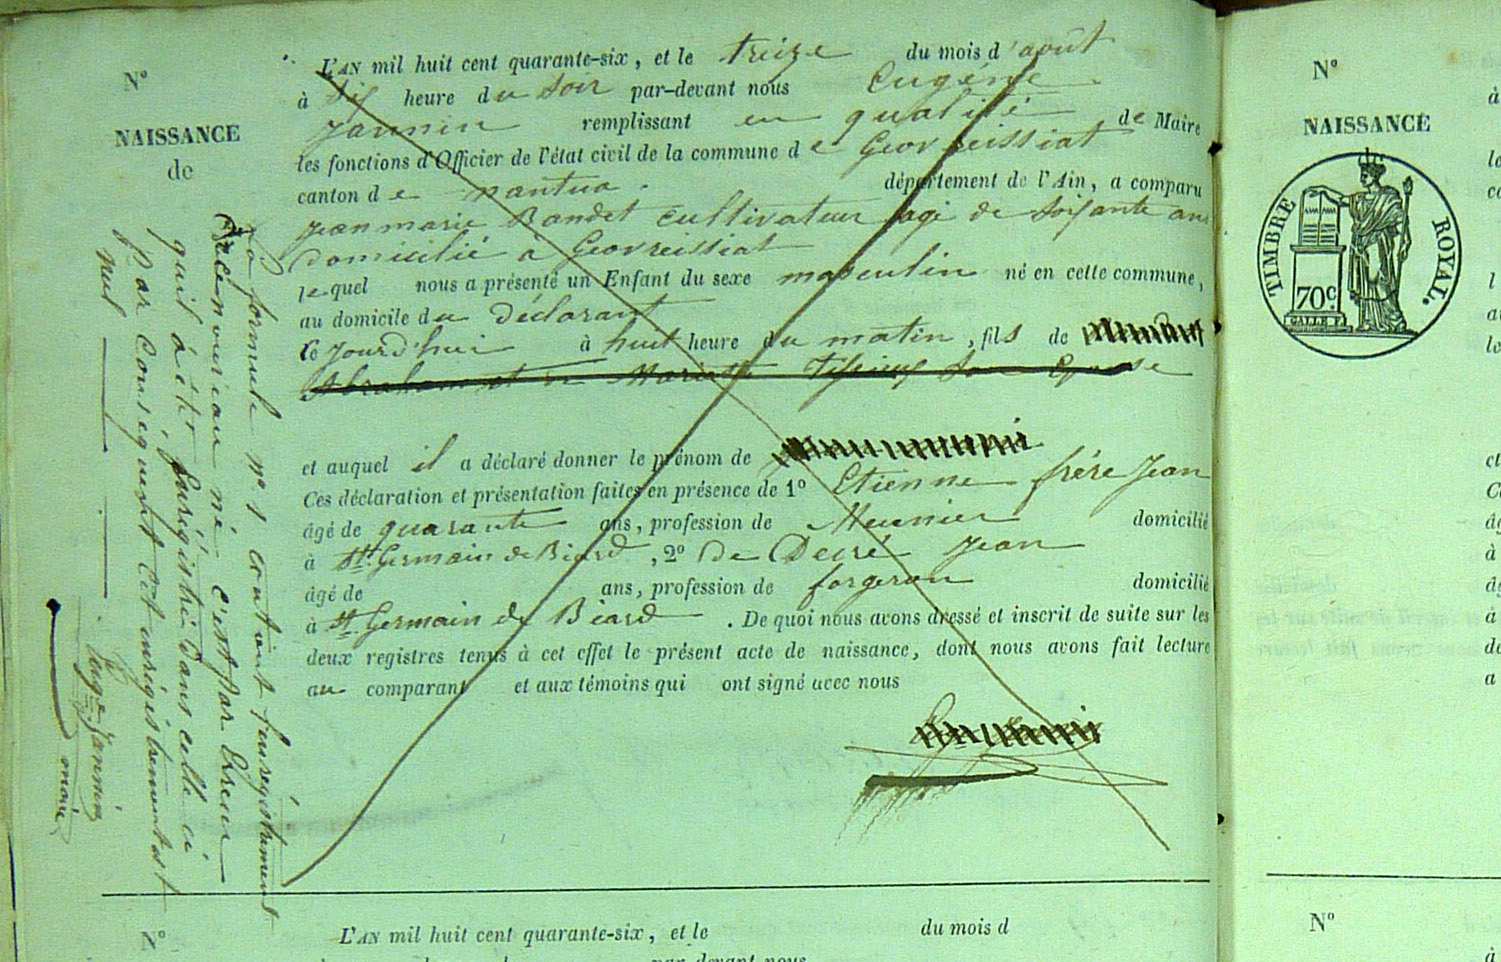 N°
NAISSANCE
de
L'AN mil huit cent quarante-six, et le treize du mois d'août
à six heure du soir par-devant nous Eugéne
Jannin remplissant en qualité de Maire
les fonctions d'Officier de l'état civil de la commune de Geovreissiat
canton de nantua. département de l'Ain, a comparu
jean marie Bandet cultivateur agé de soixante ans
domicilié à Geovreissiat
lequel nous a présenté un Enfant du sexe masculin né en cette commune,
au domicile du déclarant
le jourd'hui à huit heure du matin, fils de
Abraham et de Mariette son Epouse
et auquel il a déclaré donner le prénom de
Ces déclaration et présentation faites en présence de 1° Etienne frére Jean
âgé de quarante ans, profession de Meunier domicilié
à St. Germain de Biard, 2° de Jean
âgé de ans, profession de forgeron domicilié
à St. Germain de Biard. De quoi nous avons dressé et inscrit de suite sur les
deux registres tenus à cet effet le présent acte de naissance, dont nous avons fait lecture
au comparant et aux témoins qui ont signé avec nous
La formule n° 1 contient l'enregistrement
du nouveau né c'est par Erreur
quil à été Enregistré dans celle ci
par Conséquent cet enregistrement est
nul
Eugne Jannin
maire
N°
L'AN mil huit cent quarante-six, et le du mois d
par-devant nous
N°
NAISSANCE
TIMBRE ROYAL.
70C
N°